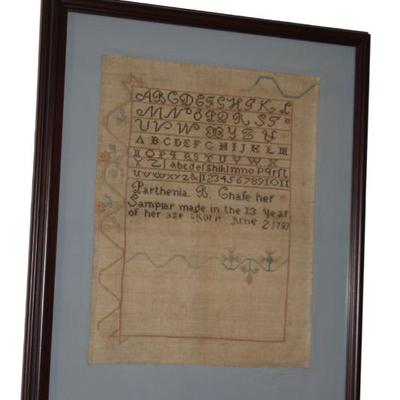 ABCDEFGHIKL
MNOPQRST
UVWXYZ
ABCDEFGHIJKLM
NOPQRSTUVWX
YZ abcdefghiklmnopqrſt
uvwxyz&12345678910 11
Parthenia B. Chase her
Samplar made in the 13 Year
of her age June 2 1797